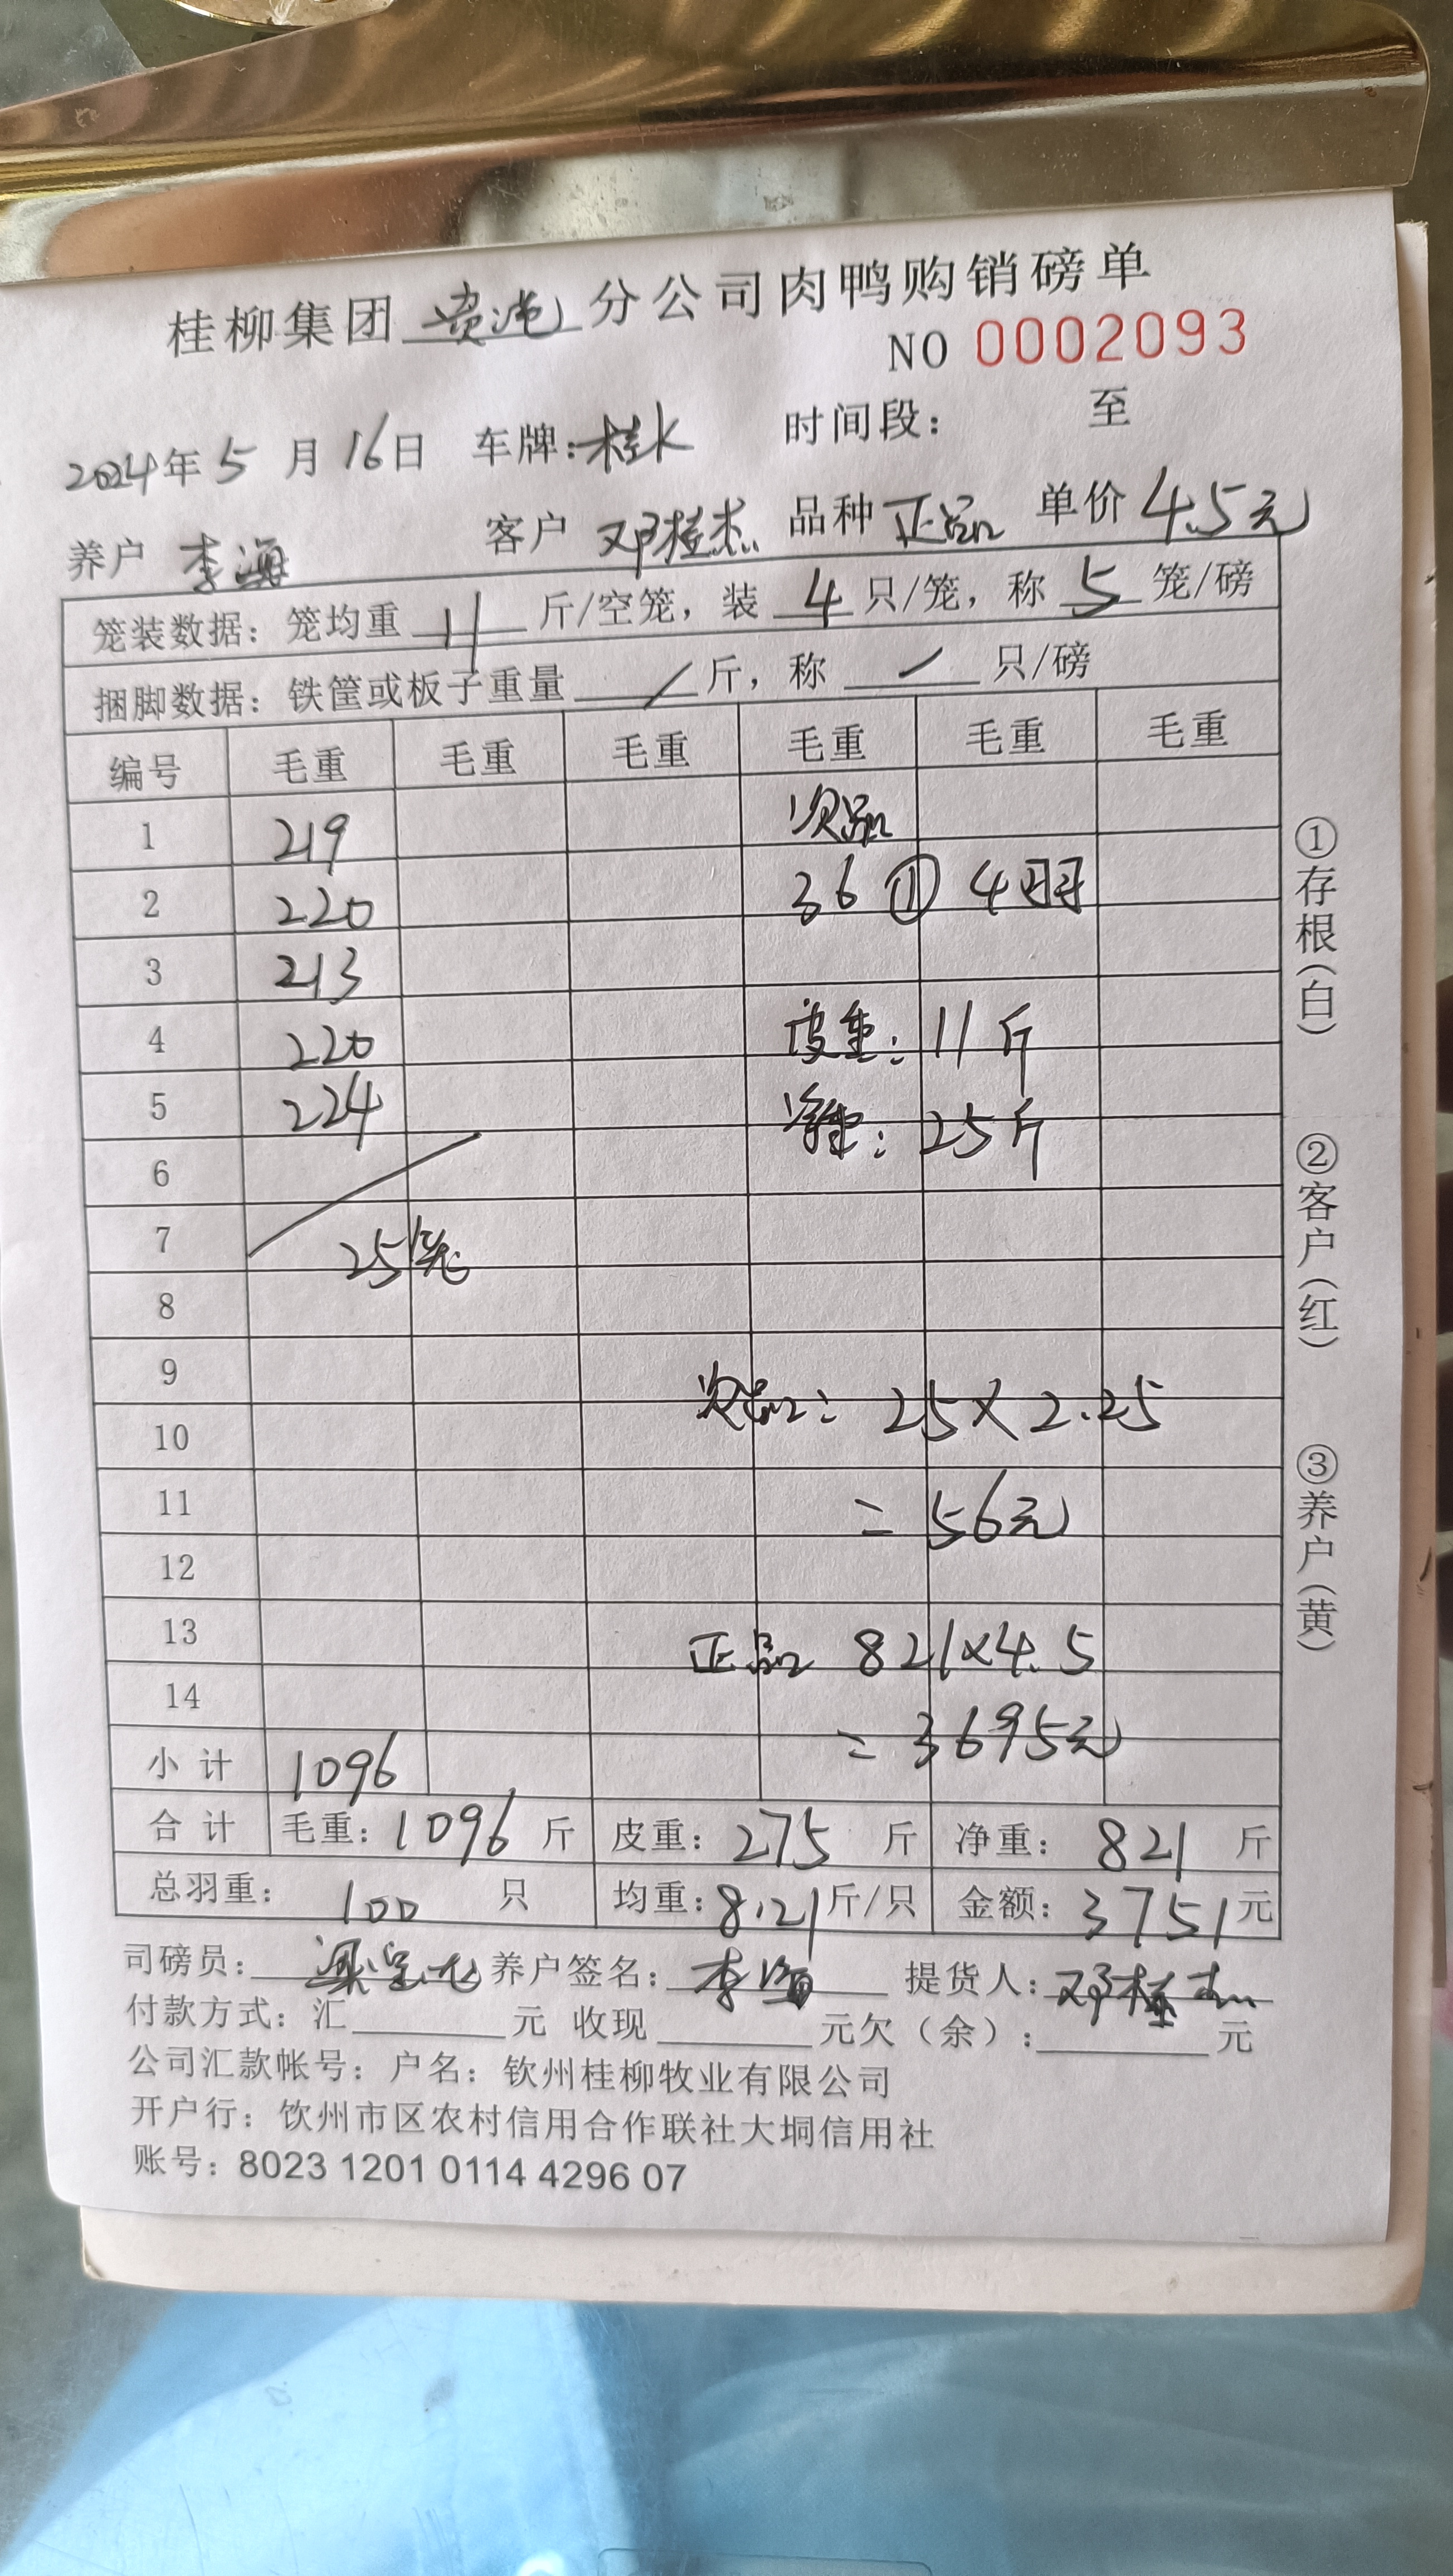 桂柳集团 贵港 分公司肉鸭购销磅单
NO 0002093
2024年 5 月 16日 车牌: 时间段: 至
养户 李海 客户 邓桂杰 品种 正品 单价 4.5元
笼装数据: 笼均重 11 斤/空笼, 装 4 只/笼, 称 5 笼/磅
捆脚数据: 铁筐或板子重量 / 斤, 称 / 只/磅
编号 毛重 毛重 毛重 毛重 毛重 毛重
1 219 次品
2 220 36 ① 4羽
3 213
4 220 皮重: 11斤
5 224 净重: 25斤
6
7 25笼
8
9
10 次品: 25×2.25
11 =56元
12
13 正品 821×4.5
14 =3695元
小计 1096
合计 毛重: 1096 斤 皮重: 275 斤 净重: 821 斤
总羽重: 100 只 均重: 8.21 斤/只 金额: 3751 元
司磅员: 养户签名: 李海 提货人: 邓桂杰
付款方式: 汇 元 收现 元欠(余): 元
公司汇款帐号: 户名: 钦州桂柳牧业有限公司
开户行: 饮州市区农村信用合作联社大垌信用社
账号: 8023 1201 0114 4296 07
①存根(白)
②客户(红)
③养户(黄)